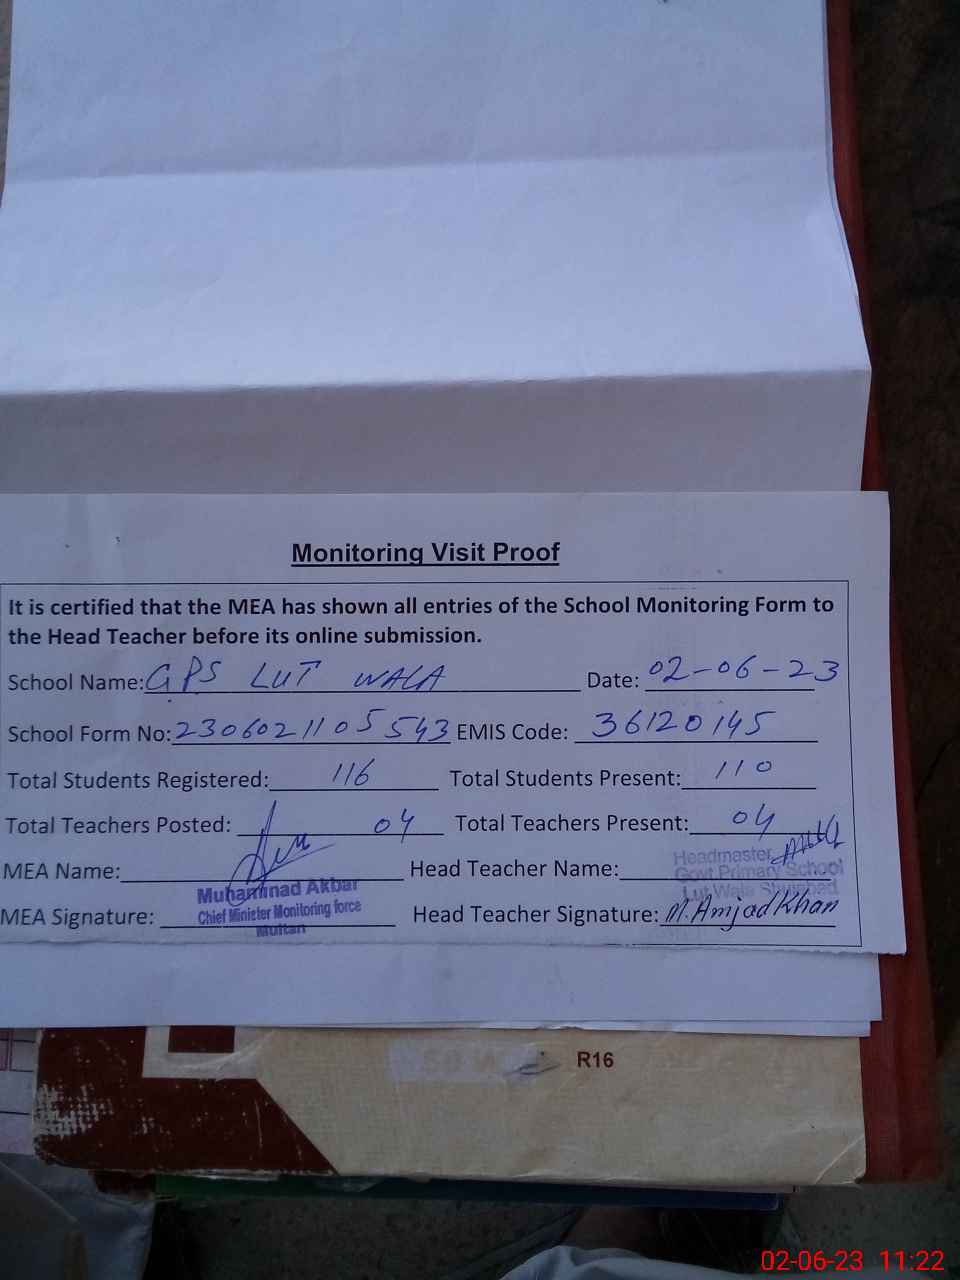 Monitoring Visit Proof
It is certified that the MEA has shown all entries of the School Monitoring Form to
the Head Teacher before its online submission.
School Name: GPS LUT WALA Date: 02-06-23
School Form No: 2306021105543 EMIS Code: 36120145
Total Students Registered: 116 Total Students Present: 110
Total Teachers Posted: 04 Total Teachers Present: 04
MEA Name: Head Teacher Name:
Headmaster
Govt Primary School
Lut Wala
Muhammad Akbar
Chief Minister Monitoring force
Multan
MEA Signature: Head Teacher Signature: M. Amjad Khan
R16
02-06-23 11:22